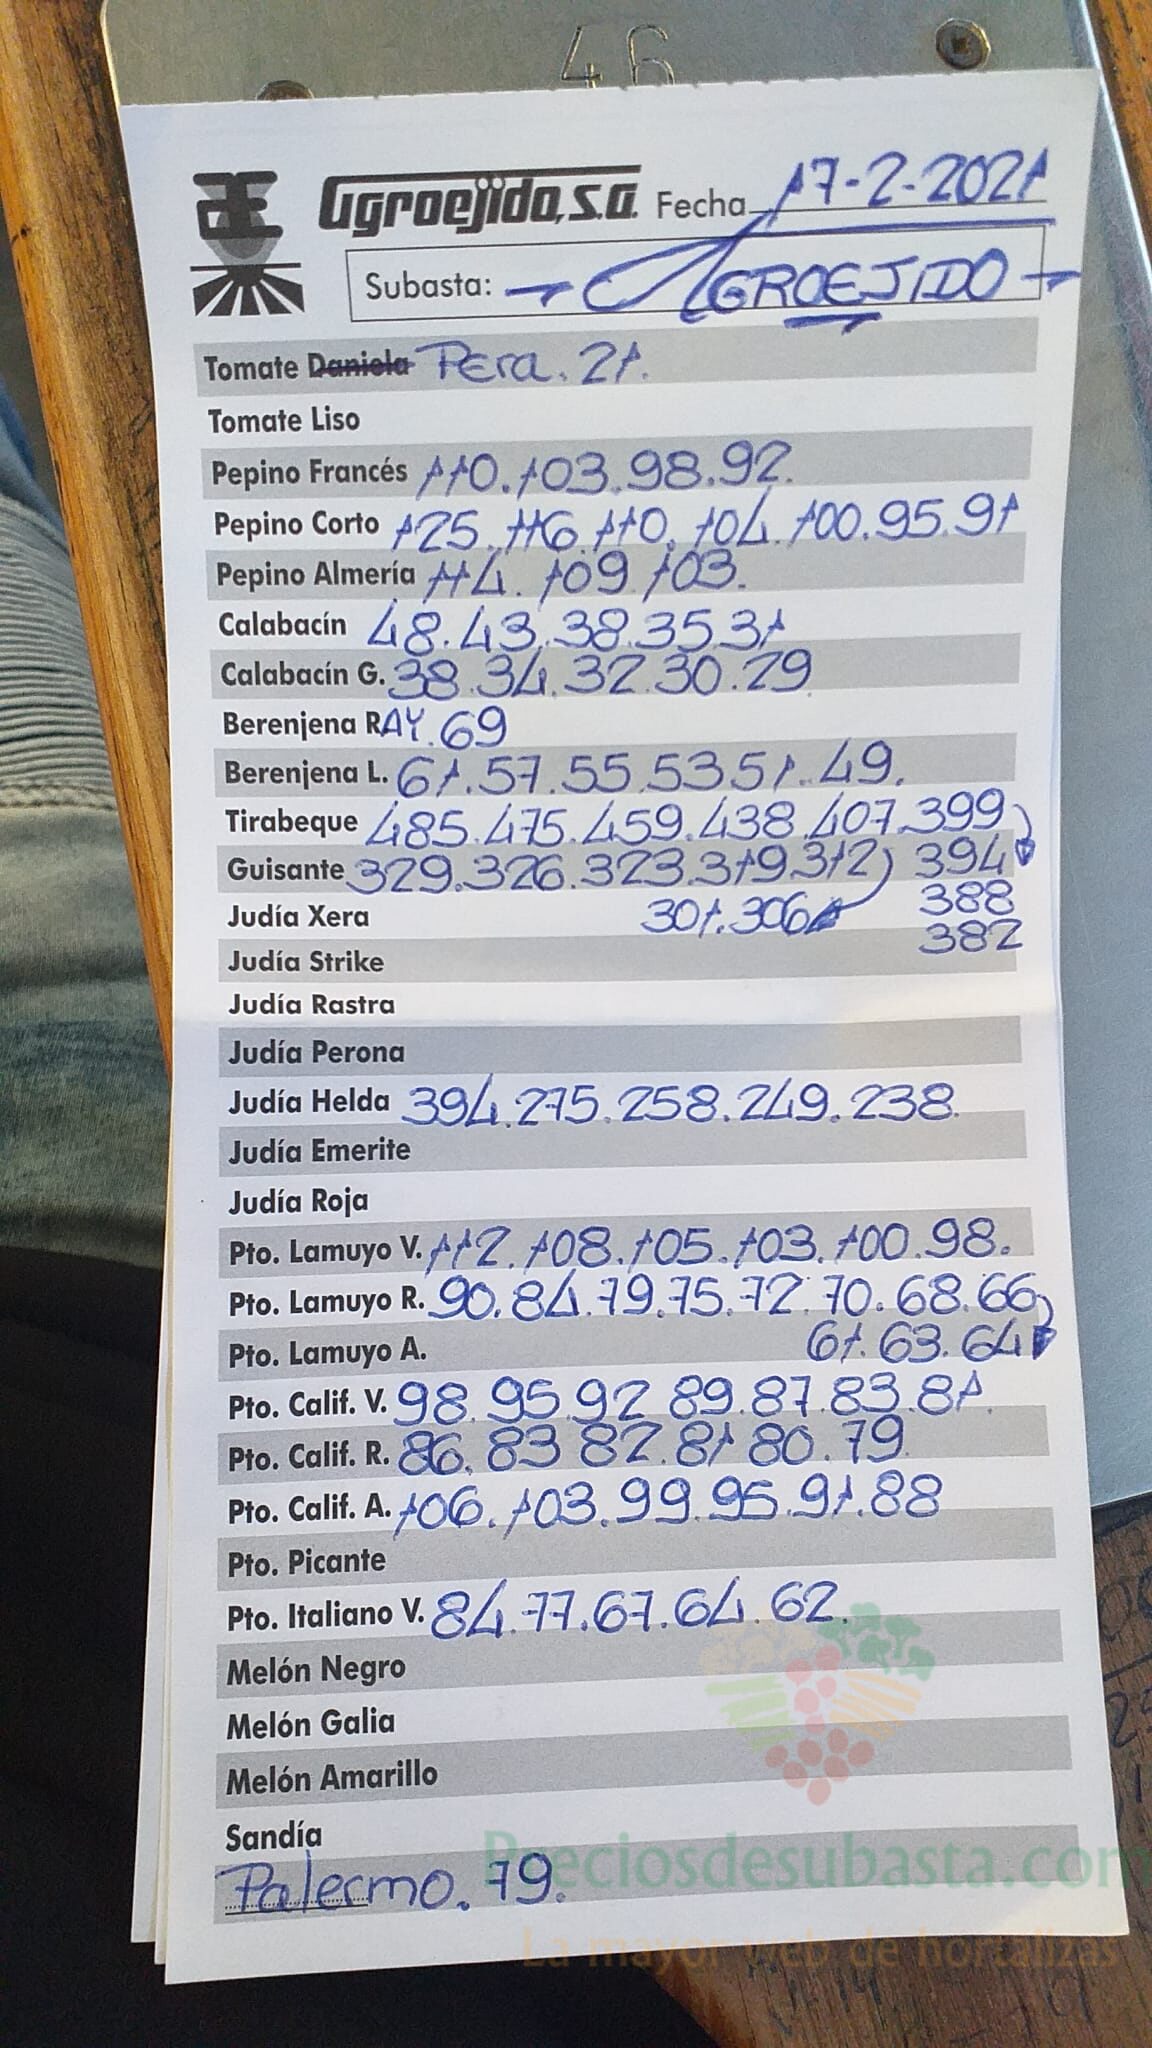 46
Agroejido, S.A. Fecha 17-2-2021
Subasta: → AGROEJIDO →
Tomate Daniela Pera. 21.
Tomate Liso
Pepino Francés 110.103.98.92.
Pepino Corto 125.116.110.104.100.95.91
Pepino Almería 114.109.103.
Calabacín 48.43.38.35.31
Calabacín G. 38.34.32.30.29
Berenjena RAY.69
Berenjena L. 61.57.55.53.51.49.
Tirabeque 485.475.459.438.407.399
Guisante 329.326.323.319.312) 394
Judía Xera 301.306 388
Judía Strike 382
Judía Rastra
Judía Perona
Judía Helda 394.275.258.249.238
Judía Emerite
Judía Roja
Pto. Lamuyo V. 112.108.105.103.100.98.
Pto. Lamuyo R. 90.84.79.75.72.70.68.66
Pto. Lamuyo A. 61.63.64
Pto. Calif. V. 98.95.92.89.87.83.81.
Pto. Calif. R. 86.83.82.81.80.79
Pto. Calif. A. 106.103.99.95.91.88
Pto. Picante
Pto. Italiano V. 84.77.67.64.62.
Melón Negro
Melón Galia
Melón Amarillo
Sandía
Palermo. 79.
Preciosdesubasta.com
La mayor web de hortalizas